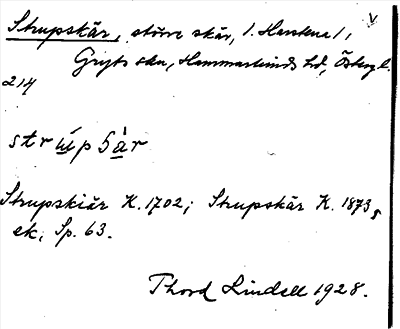 Strupskär, större skär, 1. Harstena 1,
Gryts skn, Hammarkinds hd, Östergl.
214
strupsár
Strupskiär K. 1702; Strupskär K. 1873,
ek. Sp. 63.
Thord Lindell 1928.